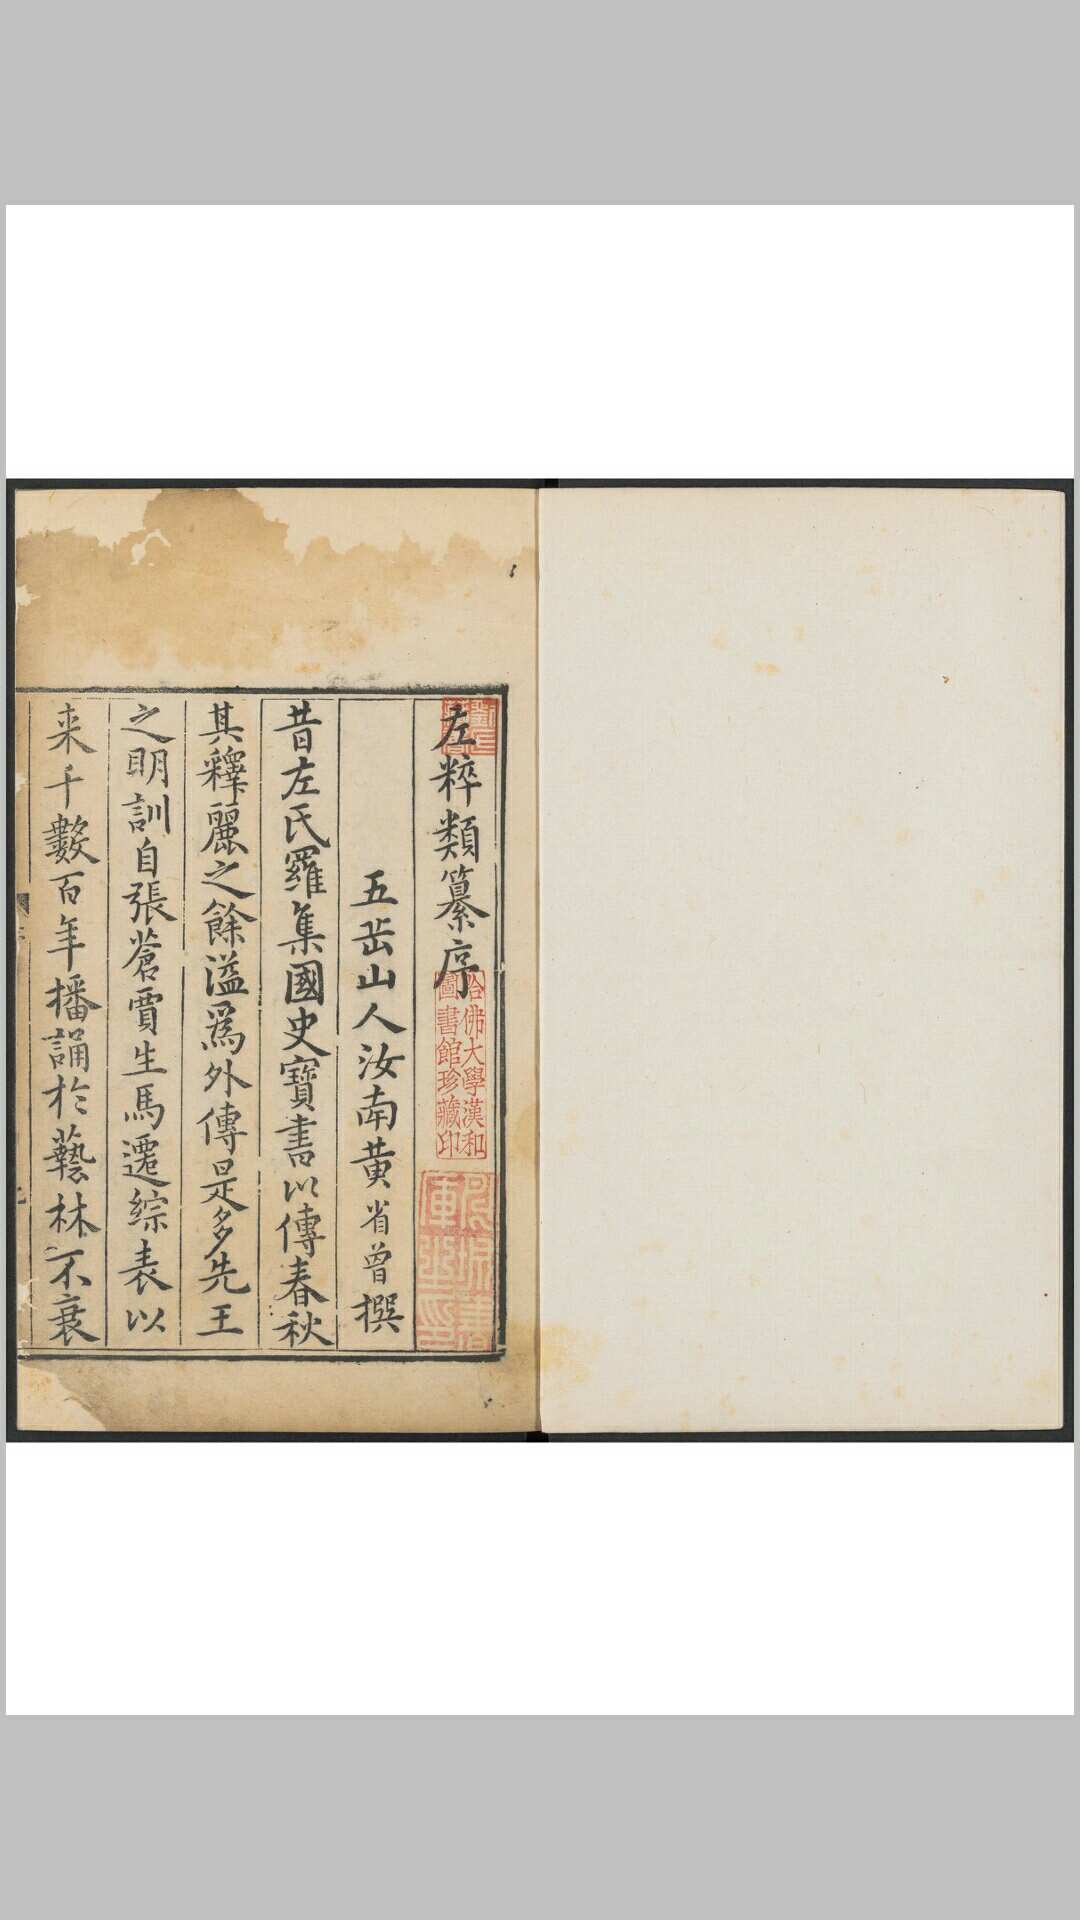 左粹類纂序
五岳山人汝南黃省曾撰
昔左氏羅集國史寶書以傳春秋
其釋麗之餘溢爲外傳是多先王
之明訓自張蒼賈生馬遷綜表以
來千數百年播誦於藝林不衰
哈佛大學漢和
圖書館珍藏印